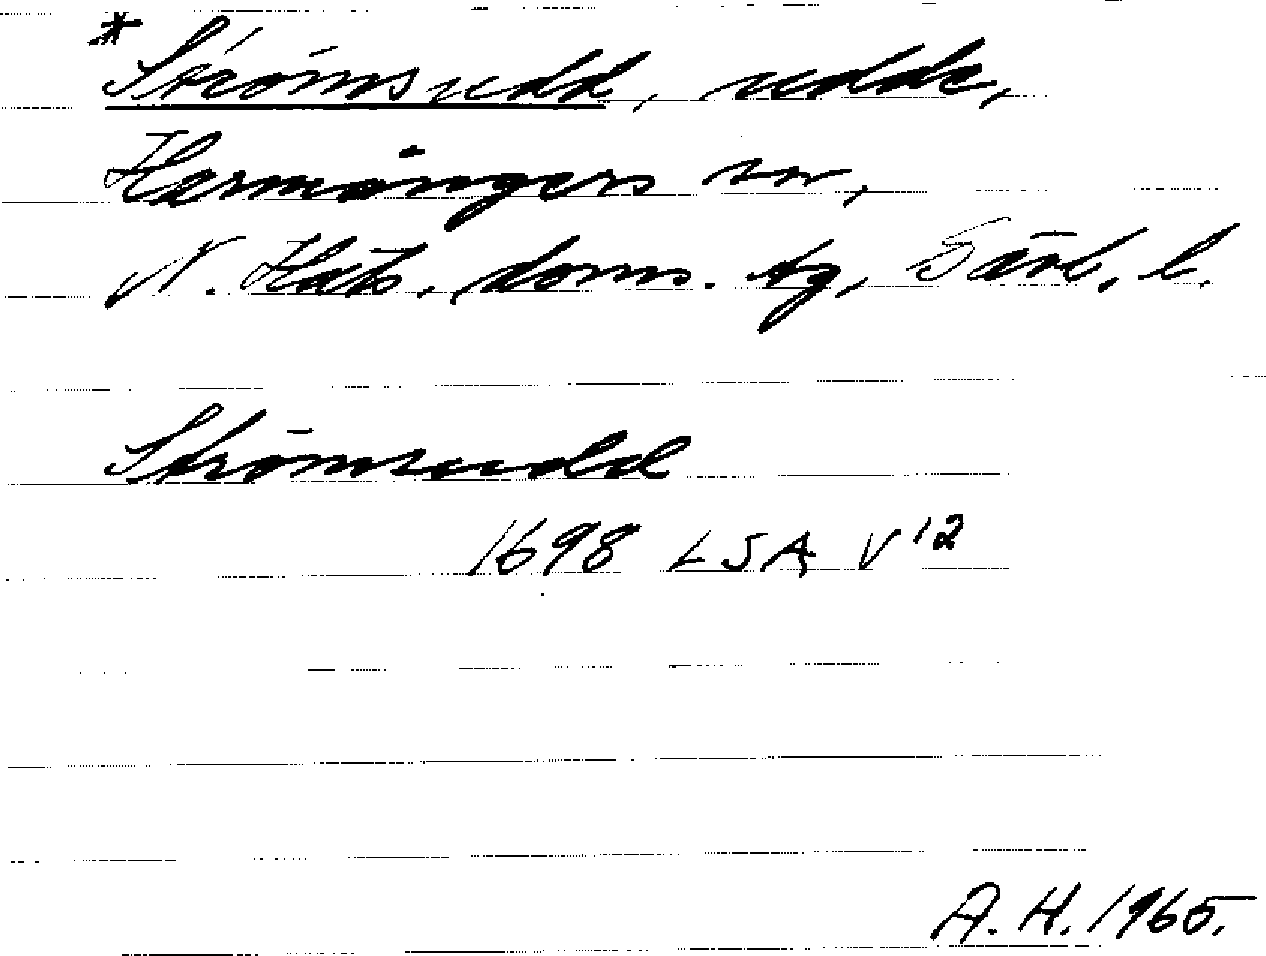 *Strömsudd, udde,
Harmångers sn,
N. Häls. doms. tg, Gävl. l.
Strömsudd
1698 LSA V 12
A. H. 1965.